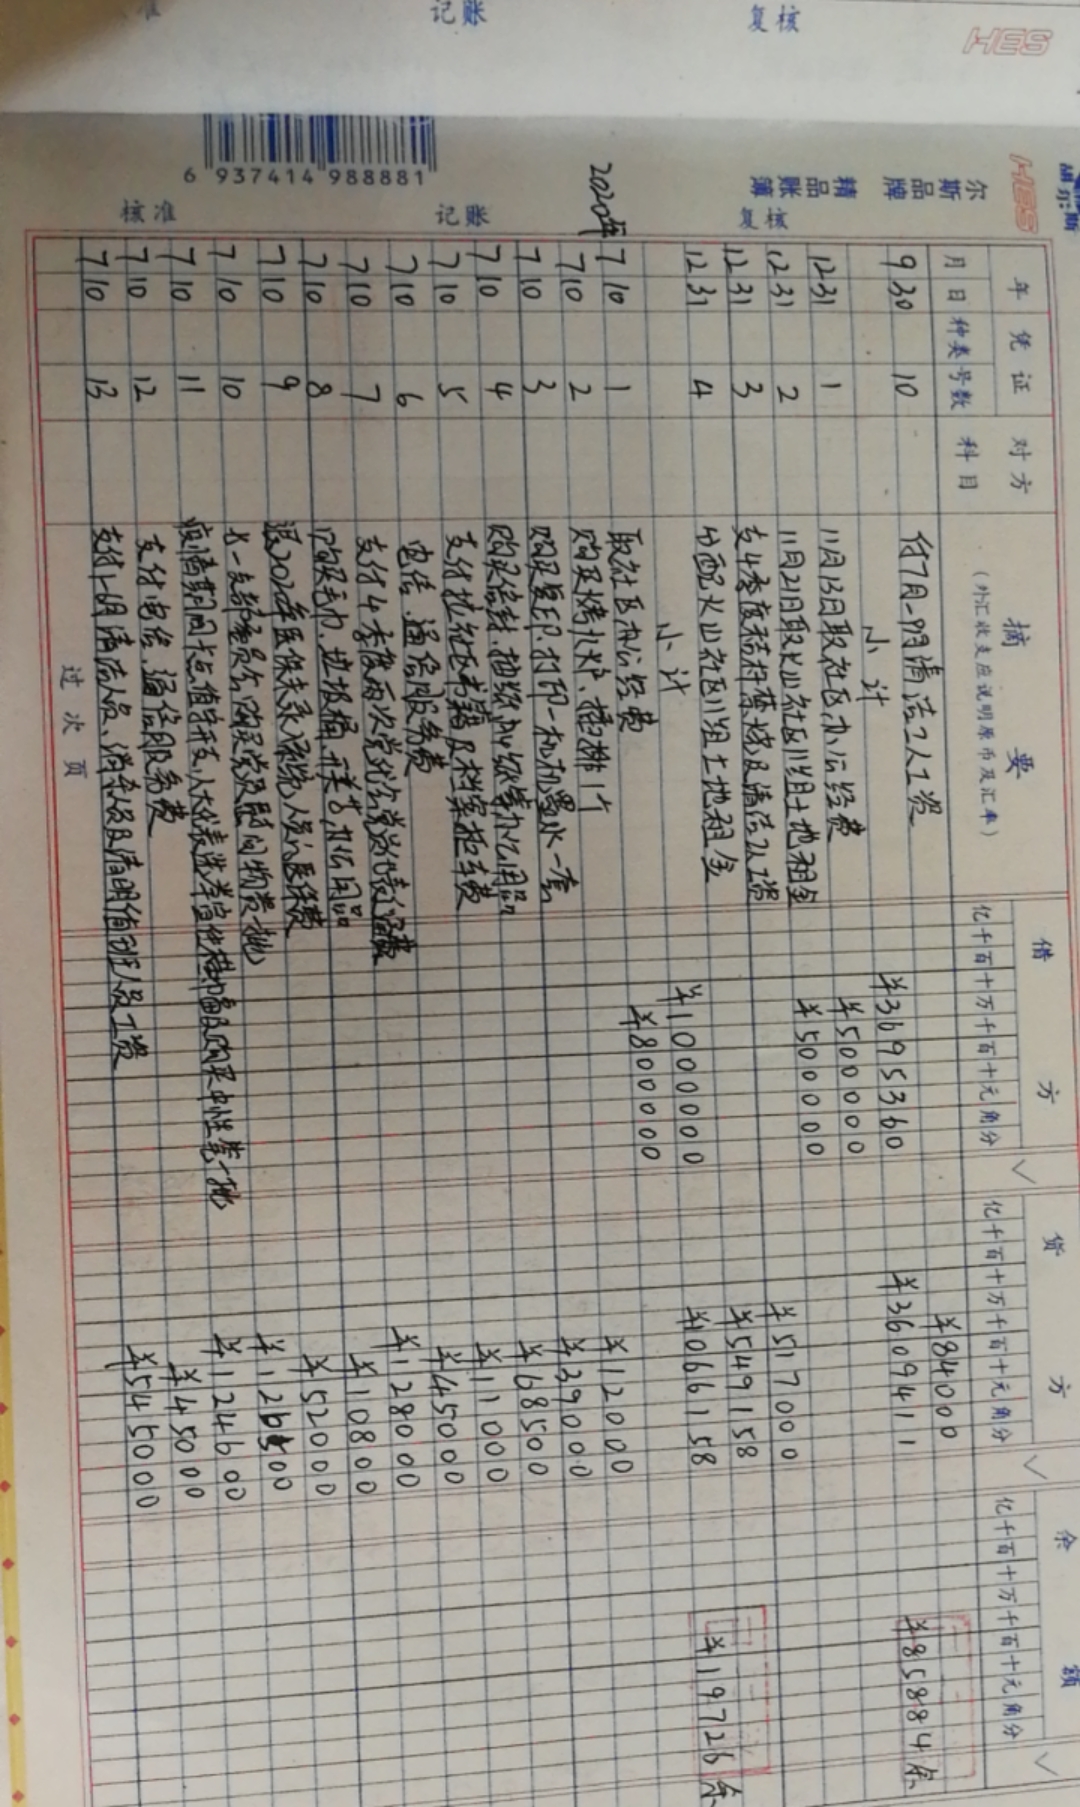 准 记账 复核
HES
HES
尔斯品牌
精品账簿
6 937414 988881
核准 记账 复核
年 凭证 对方 摘要 借方 贷方 余额
月 日 种类 号数 科目 (外汇收支应说明原币及汇率) 亿千百十万千百十元角分 √ 亿千百十万千百十元角分 √ 亿千百十万千百十元角分 √
9 30 10 付7月-9月清洁工人工资 ¥84000
小计 ¥3695360 ¥3609411 ¥85884
12 31 1 11月13日取社区办公经费 ¥500000
12 31 2 11月21日取火山社区川组土地租金 ¥500000 ¥517000
12 31 3 支4季度秸秆禁烧及清洁工资 ¥549158
12 31 4 分配火山社区川组土地租金
小计 ¥1000000 ¥1066158 ¥19726
2020年 7 10 1 取社区办公经费 ¥800000
7 10 2 购买烤火炉、插排1个 ¥12000
7 10 3 购买复印、打印一体机墨水一套 ¥39000
7 10 4 购买信封、抽纸、办公纸等办公用品 ¥68500
7 10 5 支付社区书籍及档案柜车费 ¥11000
7 10 6 电信、通信服务费 ¥45000
7 10 7 支付4季度两次党代会党代表误工费 ¥128000
7 10 8 购买毛巾、垃圾桶、开关等办公用品 ¥10800
7 10 9 退2020年医保未录系统人员医保费 ¥52000
7 10 10 七一支部委员会购买党员慰问物资一批 ¥126500
7 10 11 疫情期间卡点值守开支、人大代表选举宣传横幅及购买中性笔一批 ¥124600
7 10 12 支付电信、通信服务费 ¥45000
7 10 13 支付1-6月清洁人员、消杀人员及清明值班人员工资 ¥545000
过次页